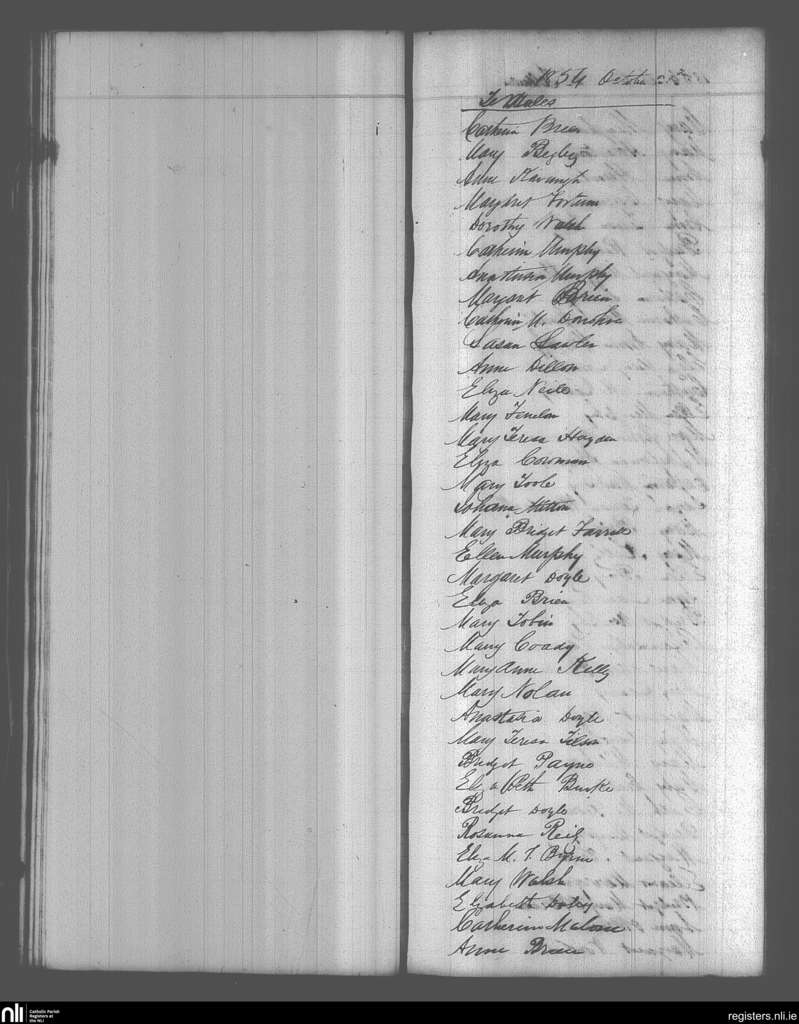 1854 October
Females
Catherin Brien
Mary Begley
Anne Kavangh
Margaret
Dorothy Walsh
Catherin Murphy
Anastasia Murphy
Margaret Brien
Catherin M. Donohoe
Susan Lawler
Anne Dillon
Eliza Neile
Mary Fenelon
Mary Teresa Hayden
Eliza
Mary Toole
Johana
Mary Bridget Farrell
Ellen Murphy
Margaret Doyle
Eliza Brien
Mary Tobin
Mary Coady
Mary Anne Kelly
Mary Nolan
Anastatia Doyle
Mary Teresa
Bridget Payne
Eliza Beth Burke
Bridget Doyle
Rosanna Reily
Eliza M. T. Byrne
Mary Walsh
Elizabeth
Catherin Malone
Anne Brien
nli
Catholic Parish
Registers at
the NLI
registers.nli.ie